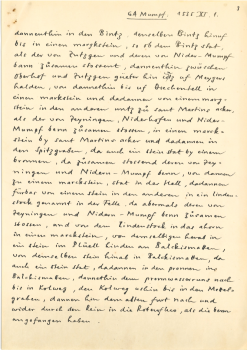 GA Mumpf. 1555 XI. 1.
dannenthin in den Bintz, denselben Bintz hinuf
bis in einen markstein, so ob dem Bintz stat
als der von Zutzgen und deren von Nider-Mumpf
bann zusamen stossent, dannenthin zwüschen
Oberhof und Zutzgen güeter hin uf
halden, von dannethin bis uf
in einen markstein und dadannen von einem mark-
stein in den anderen untz zu sant Martins aker,
als der von Zeyningen, Niderhofen und Nider-
Mumpf benn zusamen stossen, in einen marck-
stein by sant Martins acher und dadannen in
den Spitzgraben, da auch ein stein stat by einem
bronnen, da zusamen stossend deren von Zey-
ningen und Nidern-Mumpf benn, von dannen
zu einem markstein, stat in der Hell, dadannen
fürbas von einem stein in den anderen in ein linden-
stock genannt in der Felle, da abermals deren von
Zeyningen und Nidern-Mumpf benn zusamen
stossen, und von dem lindenstock in das ahorn
in einen markstein, von demselbigen herab in
ein stein im Nüell hinden am Balchismatten,
von demselben stein hinab in Balchismatten, da
auch ein stein stat, dadannen in den pronnen, ins
Balchismatten, dannethin dem pronnwasserrung nach
bis in Rotweg, den Rotweg ushin bis in den Mettel-
graben, dannen hin dem alten furt nach und
wider durch den hein in die Rotenflue, als die benn
angefangen haben.